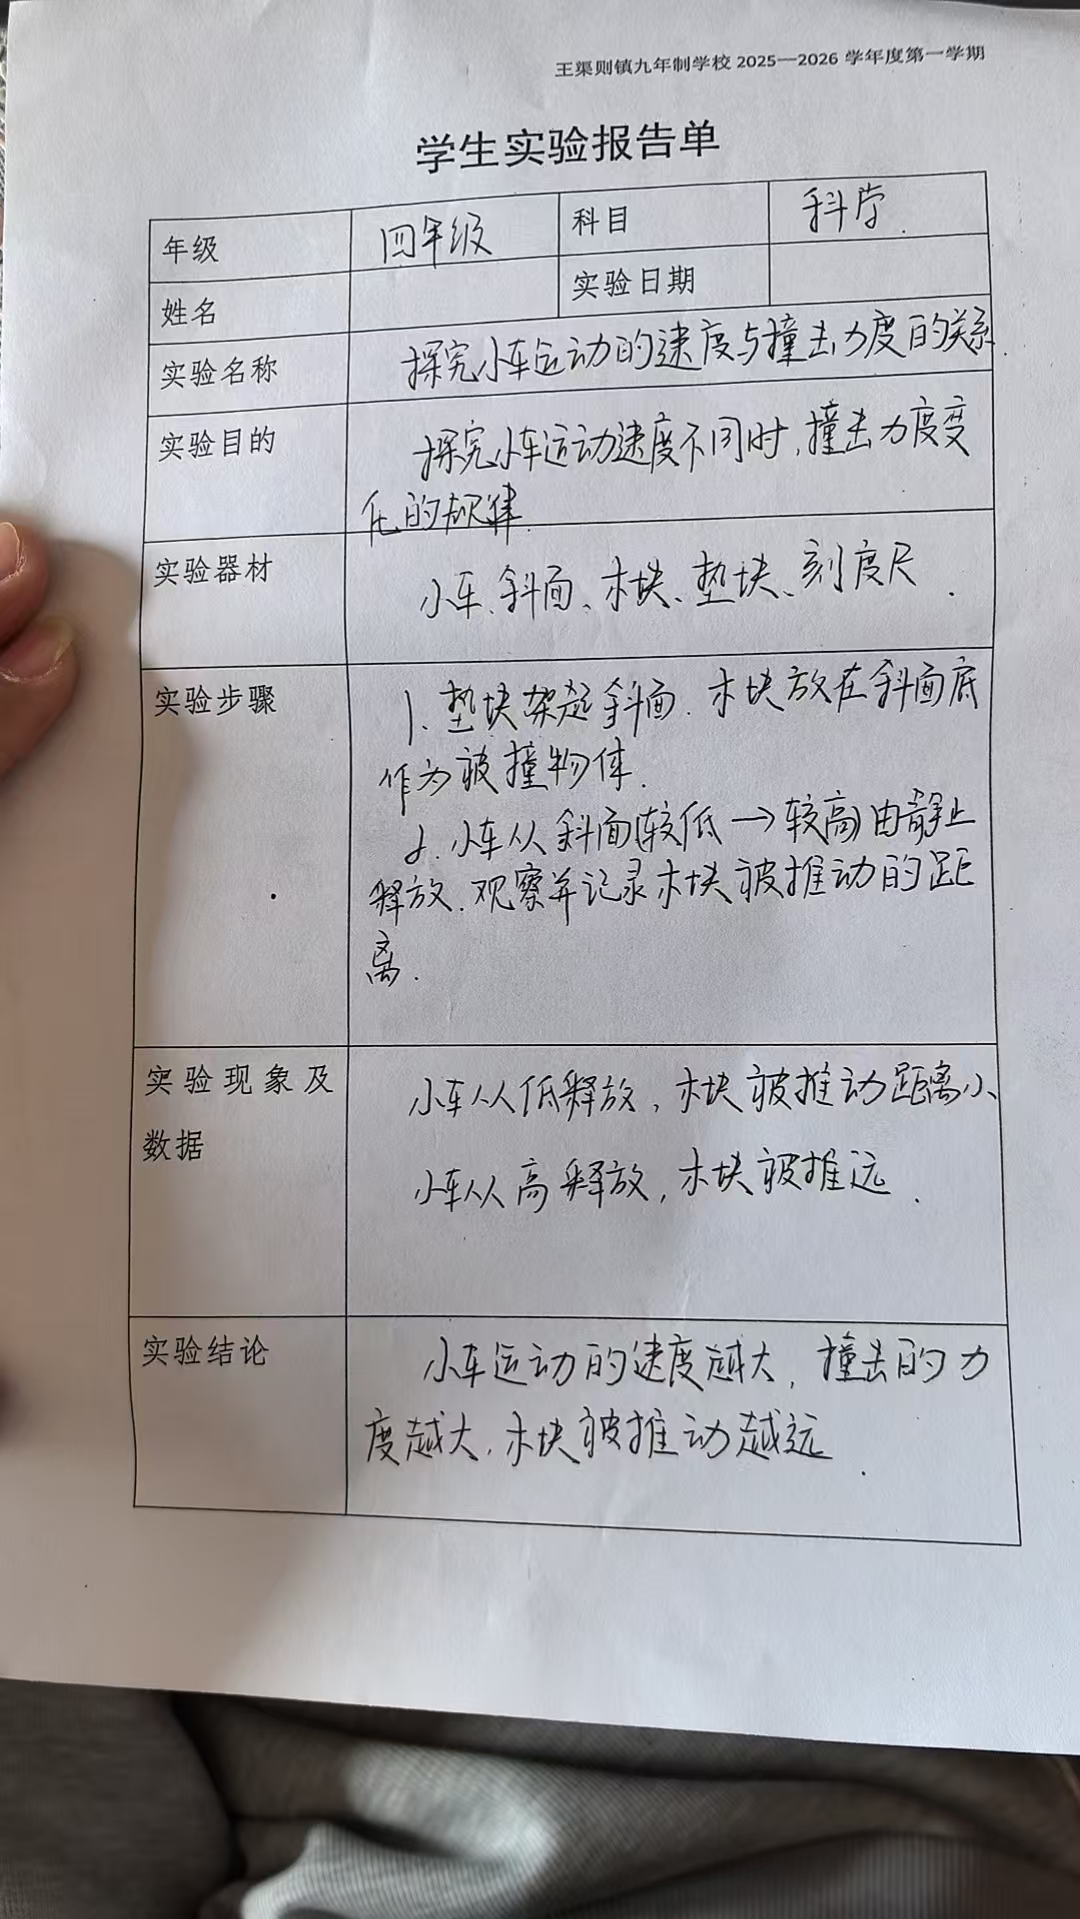 王渠则镇九年制学校 2025—2026 学年度第一学期
学生实验报告单
年级 四年级 科目 科学.
姓名 实验日期
实验名称 探究小车运动的速度与撞击力度的关系.
实验目的 探究小车运动速度不同时,撞击力度变
化的规律.
实验器材 小车、斜面、木块、垫块、刻度尺.
实验步骤 1. 垫块架起斜面. 木块放在斜面底
作为被撞物体.
2. 小车从斜面(较低→较高)由静止
释放.观察并记录木块被推动的距
离.
实验现象及 小车从低释放,木块被推动距离小、
数据
小车从高释放,木块被推远.
实验结论 小车运动的速度越大,撞击的力
度越大,木块被推动越远.